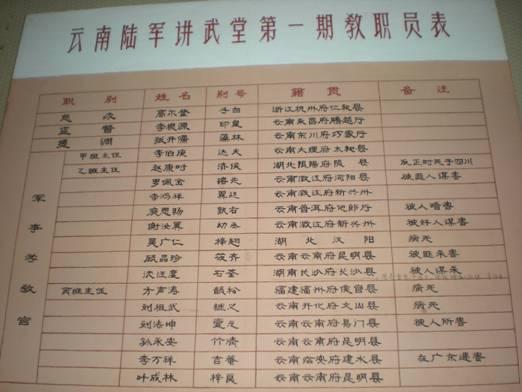 云南陆军讲武堂第一期教职员表
职 别 姓名 别号 籍贯 备注
总办 高尔登 子白 浙江杭州府仁和县
监督 李根源 印泉 云南永昌府腾越厅
提调 张开儒 藻林 云南东川府巧家厅
甲班主任 李伯庚 达夫 云南大理府太和县
乙班主任 赵康时 湖北 县 反正时死于四川
罗佩金 镕轩 云南澂江府河阳县 被匪人谋害
李鸿祥 云南澂江府新兴州
庾恩旸 云南普洱府他郎厅 被人暗害
谢汝翼 幼丞 云南澂江府新兴州 被奸人谋害
吴广仁 湖北汉阳 病死
顾品珍 筱斋 云南云南府昆明县 被匪来害
沈汪度 石荃 湖南长沙府长沙县 被人谋杀
丙班主任 方声涛 韵松 福建福州府侯官县 病死
刘祖武 继之 云南开化府文山县 病死
刘法坤 云南云南府易门县 被人所害
孙永安 竹斋 云南云南府昆明县
李万祥 云南临安府建水县 在广东遇害
叶成林 梓良 云南云南府昆明县
军事学教官